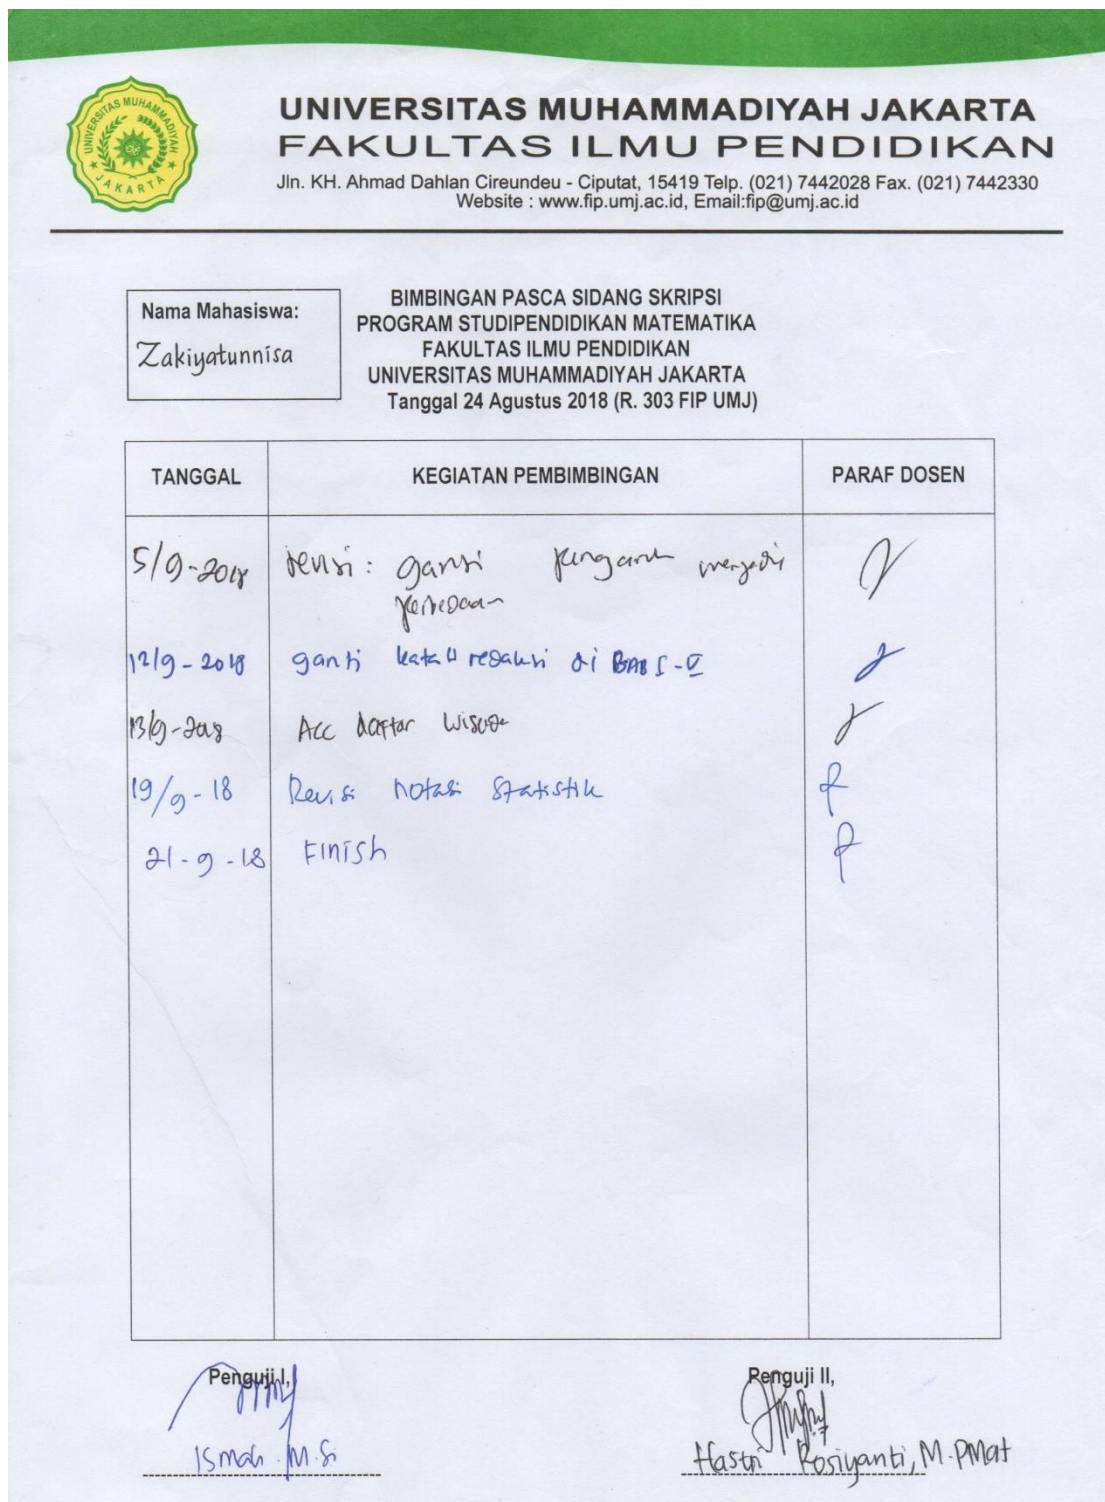 UNIVERSITAS MUHAMMADIYAH
JAKARTA
UNIVERSITAS MUHAMMADIYAH JAKARTA
FAKULTAS ILMU PENDIDIKAN
Jln. KH. Ahmad Dahlan Cireundeu - Ciputat, 15419 Telp. (021) 7442028 Fax. (021) 7442330
Website : www.fip.umj.ac.id, Email:fip@umj.ac.id
Nama Mahasiswa:
Zakiyatunnisa
BIMBINGAN PASCA SIDANG SKRIPSI
PROGRAM STUDIPENDIDIKAN MATEMATIKA
FAKULTAS ILMU PENDIDIKAN
UNIVERSITAS MUHAMMADIYAH JAKARTA
Tanggal 24 Agustus 2018 (R. 303 FIP UMJ)
TANGGAL KEGIATAN PEMBIMBINGAN PARAF DOSEN
5/9-2018 revisi: ganti pengaruh menjadi
perbedaan
12/9-2018 ganti kata" redaksi di BAB I-V
13/9-2018 Acc daftar wisuda
19/9-18 Revisi notasi statistik
21-9-18 Finish
Penguji I, Penguji II,
Ismah. M.Si Hastri Rosiyanti, M.PMat